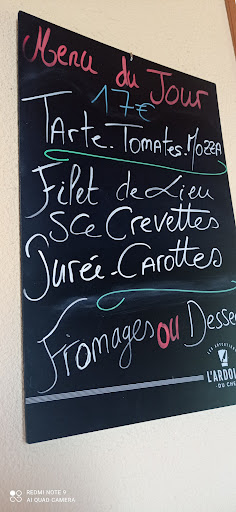 Menu du Jour
17€
Tarte-Tomates-Mozza
Filet de Lieu
Sce Crevettes
Purée-Carottes
Fromages ou Desse
L'ARDOI
DU CHE
REDMI NOTE 9
AI QUAD CAMERA